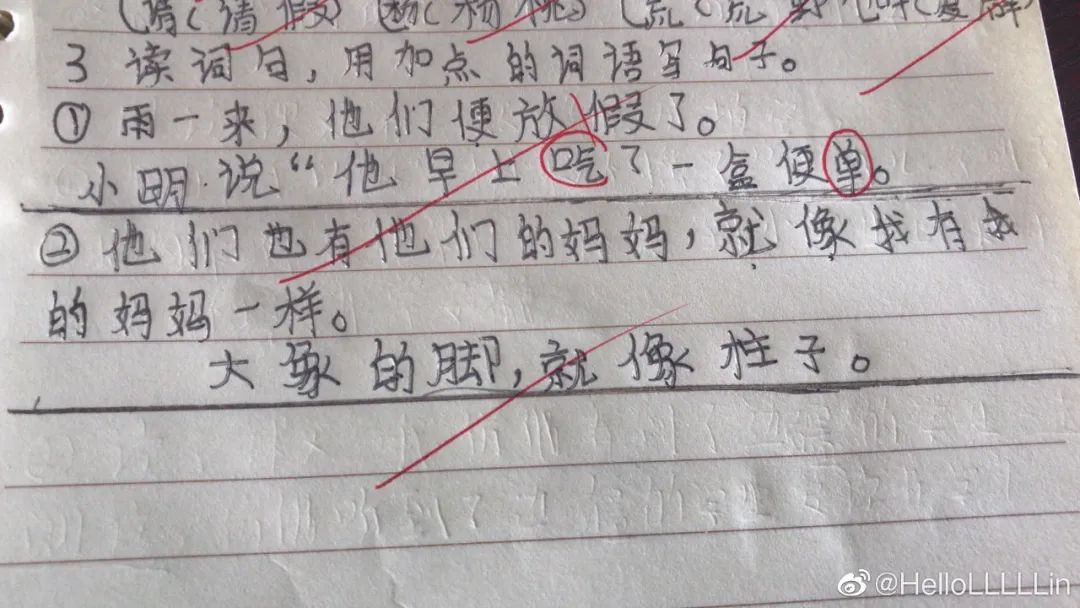 请(请假) 杨(杨桃) (荒(荒野)
3 读词句,用加点的词语写句子。
① 雨一来,他们便放假了。
小明说“他早上吃了一盒便单。
② 他们也有他们的妈妈,就像我有我
的妈妈一样。
大象的脚,就像柱子。
@HelloLLLLLin